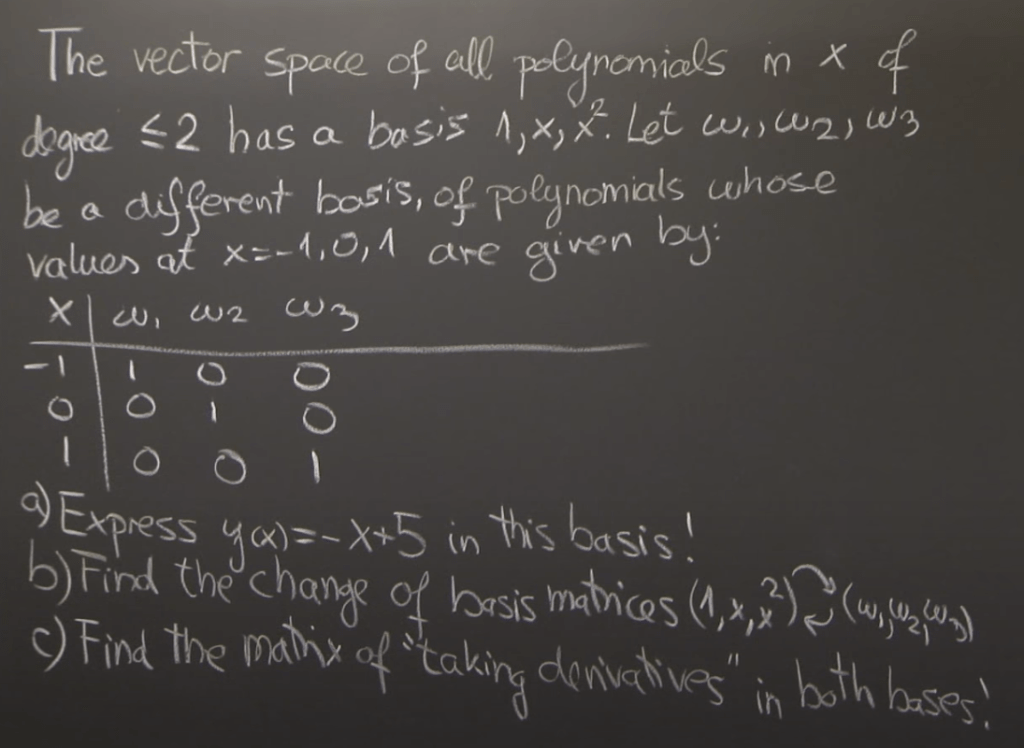 The vector space of all polynomials in x of
degree ≤2 has a basis 1, x, x². Let w₁, w₂, w₃
be a different basis, of polynomials whose
values at x=-1,0,1 are given by:
x | w₁ w₂ w₃
-1 | 1 0 0
0 | 0 1 0
1 | 0 0 1
a) Express y(x)=-x+5 in this basis!
b) Find the change of basis matrices (1,x,x²) ⇄ (w₁,w₂,w₃)
c) Find the matrix of "taking derivatives" in both bases!